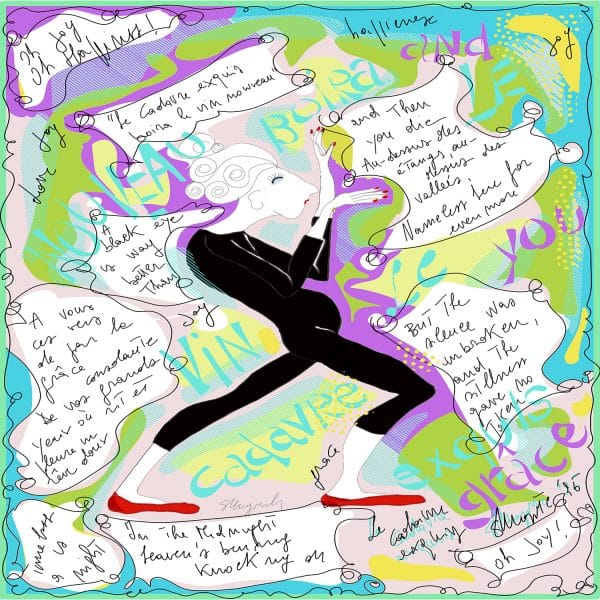 oh Joy
oh Happiness!
happiness
and
Joy
"Le Cadavre exquis
boira le vin nouveau
BOIRA
LE
and Then
you die
Au-dessus des
étangs au-
dessus des
vallées,
Nameless here for
ever more
Joy
NOUVEAU
A
black eye
is way
better
Than
Joy
you
Le
A vous
ces vers
de par la
grâce consolante
de vos grands
yeux où rit et
pleure un
VIN
But The
silence was
unbroken,
and The
stillness
gave no
Token
cadavre
exquis
grace
grace
In The Midnight
heaven's burning
Knocking on
Le
Cadavre
exquis
night
oh Joy!